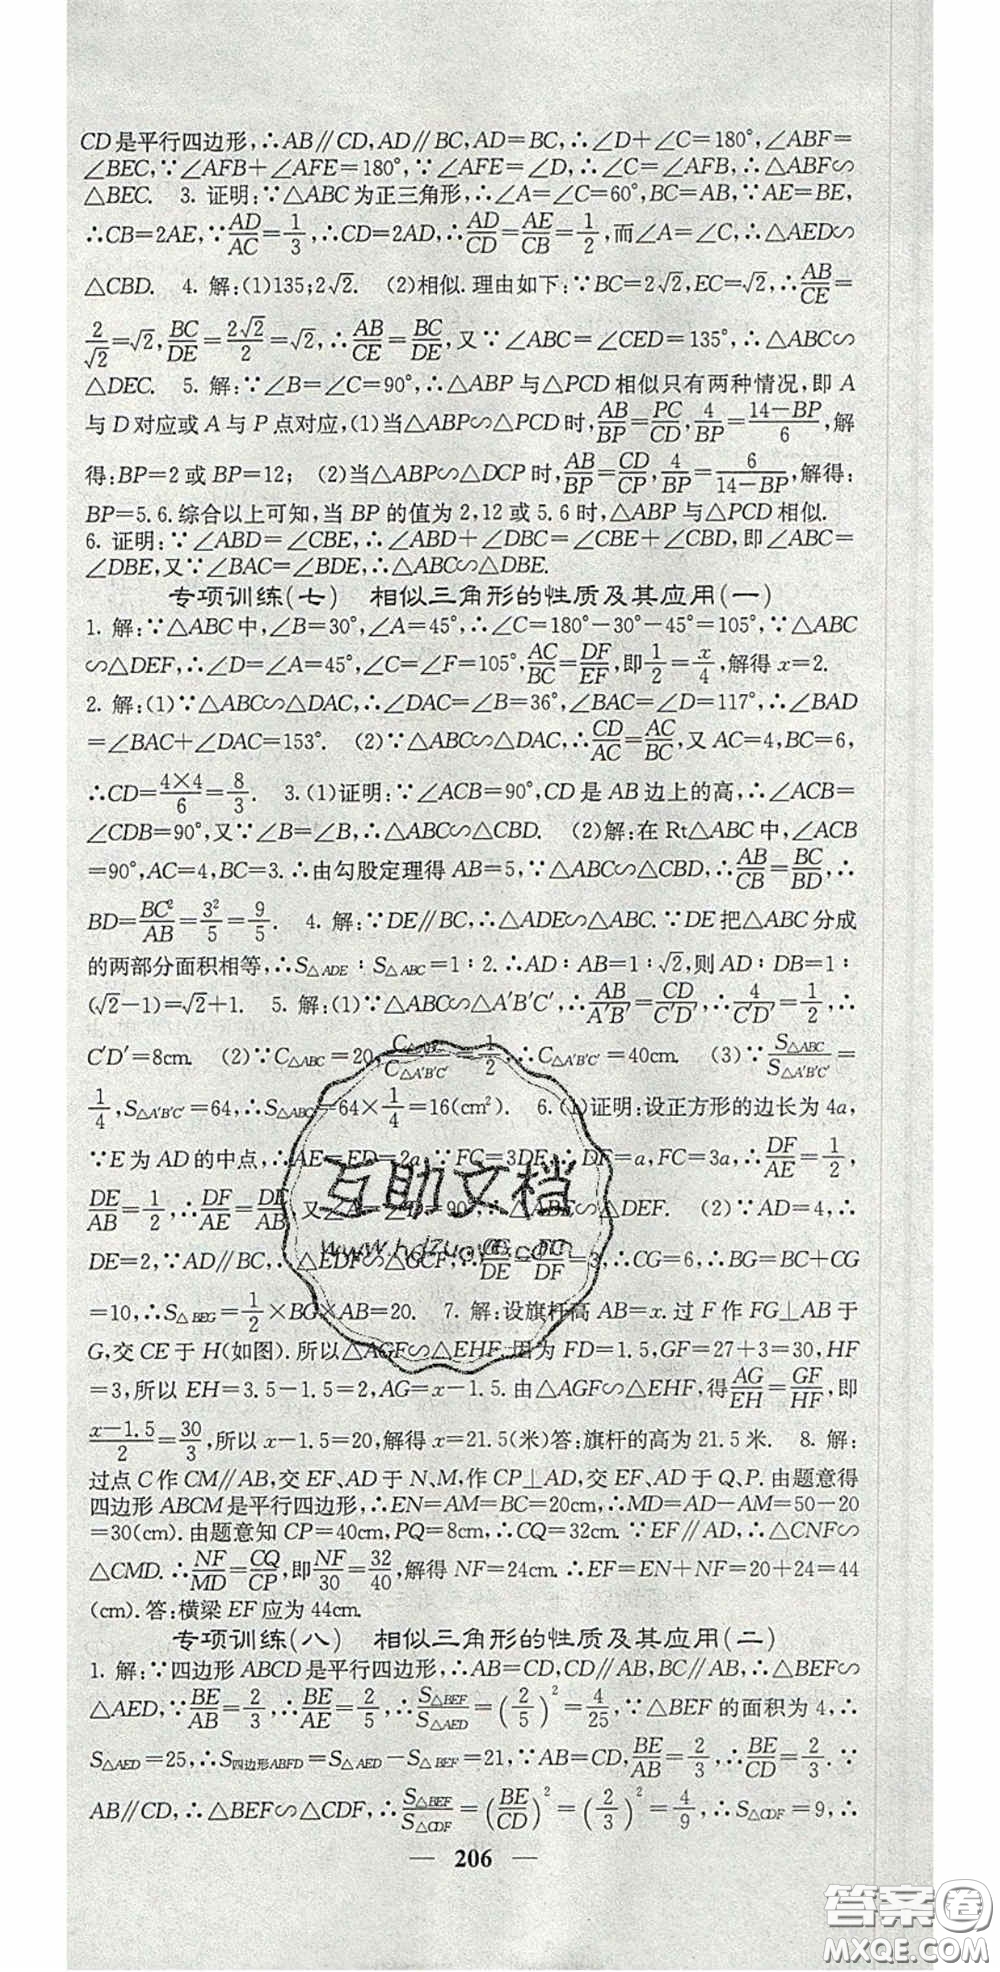 CD是平行四边形,∴AB∥CD,AD∥BC,AD=BC,∴∠D+∠C=180°,∠ABF=
∠BEC,∵∠AFB+∠AFE=180°,∵∠AFE=∠D,∴∠C=∠AFB,∴△ABF∽
△BEC. 3. 证明:∵△ABC为正三角形,∴∠A=∠C=60°,BC=AB,∵AE=BE,
∴CB=2AE,∵AD/AC=1/3,∴CD=2AD,∴AD/CD=AE/CB=1/2,而∠A=∠C,∴△AED∽
△CBD. 4. 解:(1)135;2√2. (2)相似.理由如下:∵BC=2√2,EC=√2,∴AB/CE=
2/√2=√2,BC/DE=2√2/2=√2,∴AB/CE=BC/DE,又∵∠ABC=∠CED=135°,∴△ABC∽
△DEC. 5. 解:∵∠B=∠C=90°,∴△ABP与△PCD相似只有两种情况,即A
与D对应或A与P点对应,(1)当△ABP∽△PCD时,AB/BP=PC/CD,4/BP=14-BP/6,解
得:BP=2或BP=12; (2)当△ABP∽△DCP时,AB/BP=CD/CP,4/BP=6/14-BP,解得:
BP=5.6.综合以上可知,当BP的值为2,12或5.6时,△ABP与△PCD相似.
6. 证明:∵∠ABD=∠CBE,∴∠ABD+∠DBC=∠CBE+∠CBD,即∠ABC=
∠DBE,又∵∠BAC=∠BDE,∴△ABC∽△DBE.
专项训练(七) 相似三角形的性质及其应用(一)
1. 解:∵△ABC中,∠B=30°,∠A=45°,∴∠C=180°-30°-45°=105°,∵△ABC
∽△DEF,∴∠D=∠A=45°,∠C=∠F=105°,AC/BC=DF/EF,即1/2=x/4,解得x=2.
2. 解:(1)∵△ABC∽△DAC,∴∠DAC=∠B=36°,∠BAC=∠D=117°,∴∠BAD
=∠BAC+∠DAC=153°. (2)∵△ABC∽△DAC,∴CD/AC=AC/BC,又AC=4,BC=6,
∴CD=4×4/6=8/3. 3.(1)证明:∵∠ACB=90°,CD是AB边上的高,∴∠ACB
=∠CDB=90°,又∵∠B=∠B,∴△ABC∽△CBD. (2)解:在Rt△ABC中,∠ACB
=90°,AC=4,BC=3.∴由勾股定理得AB=5,∵△ABC∽△CBD,∴AB/CB=BC/BD,∴
BD=BC²/AB=3²/5=9/5. 4. 解:∵DE∥BC,∴△ADE∽△ABC.∵DE把△ABC分成
的两部分面积相等,∴S△ADE:S△ABC=1:2.∴AD:AB=1:√2,则AD:DB=1:
(√2-1)=√2+1. 5. 解:(1)∵△ABC∽△A′B′C′,∴AB/A′B′=CD/C′D′,∴4/C′D′=1/2,∴
C′D′=8cm. (2)∵C△ABC=20,C△ABC/C△A′B′C′=1/2,∴C△A′B′C′=40cm. (3)∵S△ABC/S△A′B′C′=
1/4,S△A′B′C′=64,∴S△ABC=64×1/4=16(cm²). 6.(1)证明:设正方形的边长为4a,
∵E为AD的中点,∴AE=ED=2a,∵FC=3DF,∴DF=a,FC=3a,∴DF/AE=1/2,
DE/AB=1/2,∴DF/AE=DE/AB,又∠A=∠D=90°,∴△ABE∽△DEF. (2)∵AD=4,∴
DE=2,∵AD∥BC,∴△EDF∽△GCF,∴CG/DE=FC/DF=3,∴CG=6,∴BG=BC+CG
=10,∴S△BEG=1/2×BG×AB=20. 7. 解:设旗杆高AB=x.过F作FG⊥AB于
G,交CE于H(如图).所以△AGF∽△EHF.因为FD=1.5,GF=27+3=30,HF
=3,所以EH=3.5-1.5=2,AG=x-1.5.由△AGF∽△EHF,得AG/EH=GF/HF,即
x-1.5/2=30/3,所以x-1.5=20,解得x=21.5(米)答:旗杆的高为21.5米. 8. 解:
过点C作CM∥AB,交EF、AD于N、M,作CP⊥AD,交EF、AD于Q、P.由题意得
四边形ABCM是平行四边形,∴EN=AM=BC=20cm,∴MD=AD-AM=50-20
=30(cm).由题意知CP=40cm,PQ=8cm,∴CQ=32cm.∵EF∥AD,∴△CNF∽
△CMD.∴NF/MD=CQ/CP,即NF/30=32/40,解得NF=24cm.∴EF=EN+NF=20+24=44
(cm).答:横梁EF应为44cm.
专项训练(八) 相似三角形的性质及其应用(二)
1. 解:∵四边形ABCD是平行四边形,∴AB=CD,CD∥AB,BC∥AB,∴△BEF∽
△AED,∵BE/AB=2/3,∴BE/AE=2/5,∴S△BEF/S△AED=(2/5)²=4/25,∵△BEF的面积为4,∴
S△AED=25,∴S四边形ABFD=S△AED-S△BEF=21,∵AB=CD,BE/AB=2/3,∴BE/CD=2/3.∵
AB∥CD,∴△BEF∽△CDF,∴S△BEF/S△CDF=(BE/CD)²=(2/3)²=4/9,∴S△CDF=9,∴
— 206 —
互助文档
答案圈
MXQE.COM